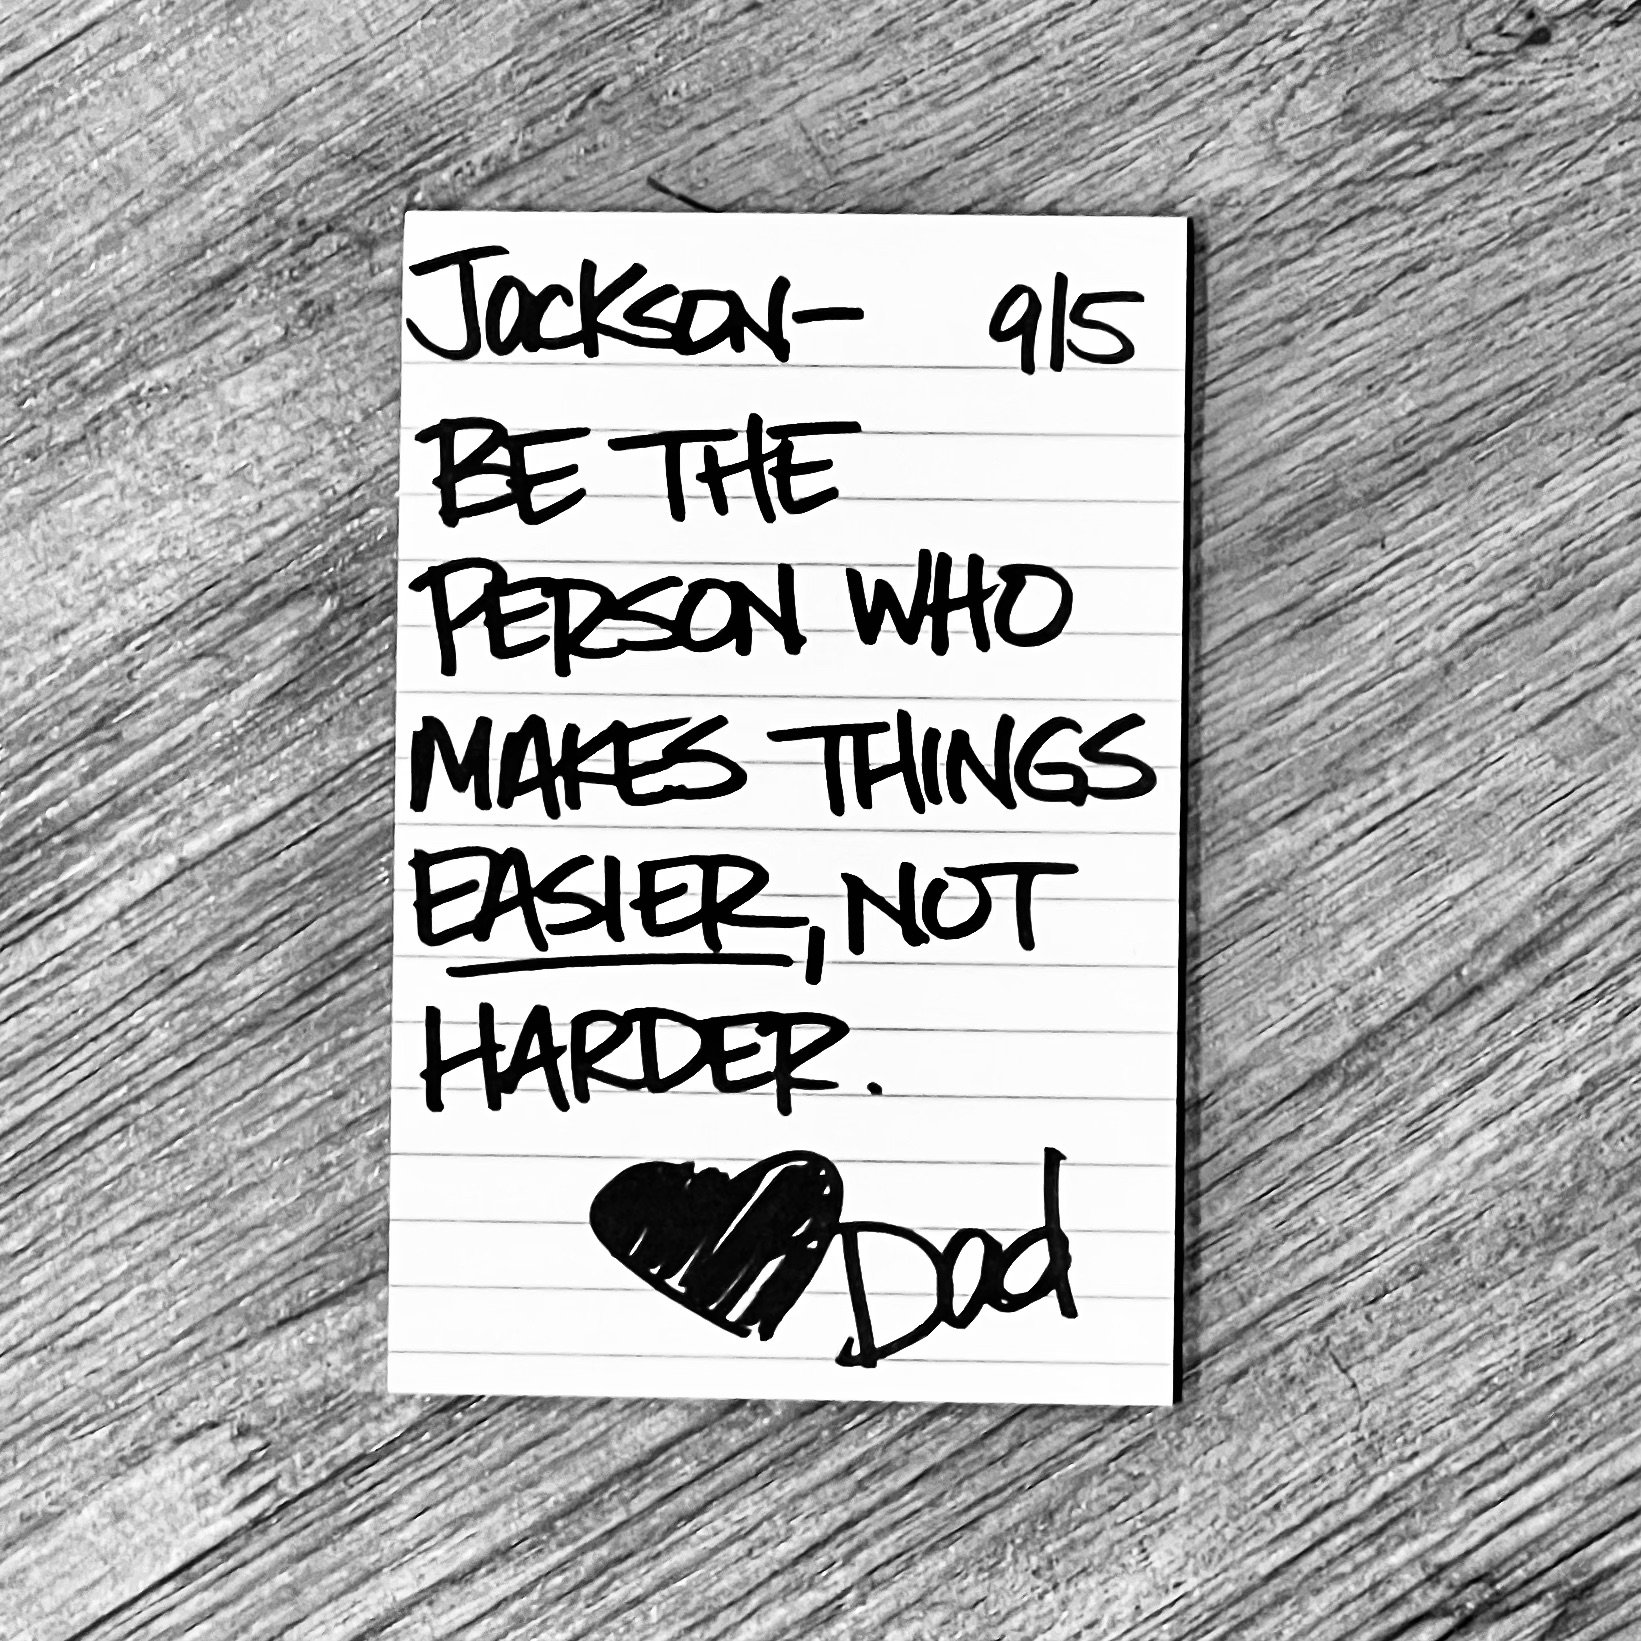 Jackson- 9/5
BE THE
PERSON WHO
MAKES THINGS
EASIER, NOT
HARDER.
Dad